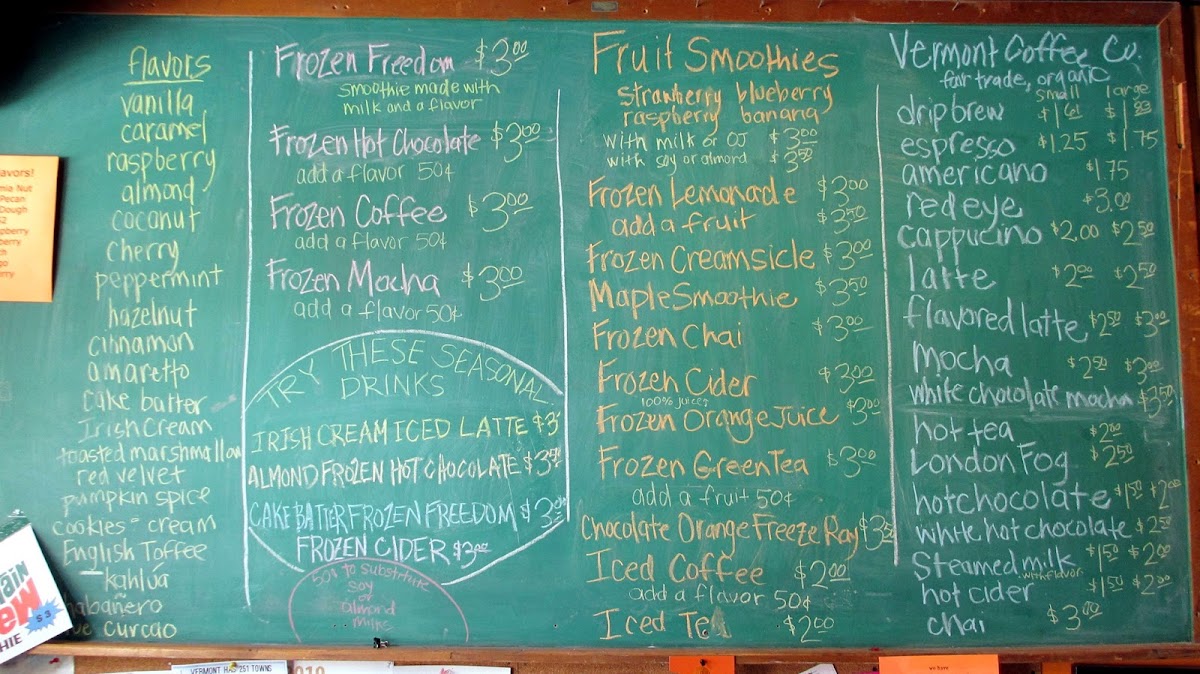 flavors
vanilla
caramel
raspberry
almond
coconut
cherry
peppermint
hazelnut
cinnamon
amaretto
cake batter
Irish Cream
toasted marshmallow
red velvet
pumpkin spice
cookies = cream
English Toffee
kahlúa
habañero
curcao
avors!
mia Nut
Pecan
Dough
Frozen Freedom $3.00
smoothie made with
milk and a flavor
Frozen Hot Chocolate $3.00
add a flavor 50¢
Frozen Coffee $3.00
add a flavor 50¢
Frozen Mocha $3.00
add a flavor 50¢
TRY THESE SEASONAL
DRINKS
IRISH CREAM ICED LATTE $3
ALMOND FROZEN HOT CHOCOLATE $3.50
CAKE BATTER FROZEN FREEDOM $3.00
FROZEN CIDER $3.00
50¢ to substitute
soy
or
almond
milks
Fruit Smoothies
strawberry blueberry
raspberry banana
with milk or OJ $3.00
with soy or almond $3.50
Frozen Lemonade $3.00
add a fruit $3.50
Frozen Creamsicle $3.00
Maple Smoothie $3.50
Frozen Chai $3.00
Frozen Cider $3.00
100% juice
Frozen Orange Juice $3.00
Frozen Green Tea $3.00
add a fruit 50¢
Chocolate Orange Freeze Ray $3.50
Iced Coffee $2.00
add a flavor 50¢
Iced Tea $2.00
Vermont Coffee Co.
fair trade, organic
small large
drip brew $1.61
espresso $1.25 $1.75
americano $1.75
redeye $3.00
cappucino $2.00 $2.50
latte $2.00 $2.50
flavored latte $2.50 $3.00
Mocha $2.50 $3.00
white chocolate mocha $3.50
hot tea $2.00
London Fog $2.50
hot chocolate $1.50 $2.00
white hot chocolate $2.50
Steamed milk $1.50 $2.00
with flavor
hot cider $1.50 $2.00
chai $3.00
VERMONT HAS 251 TOWNS